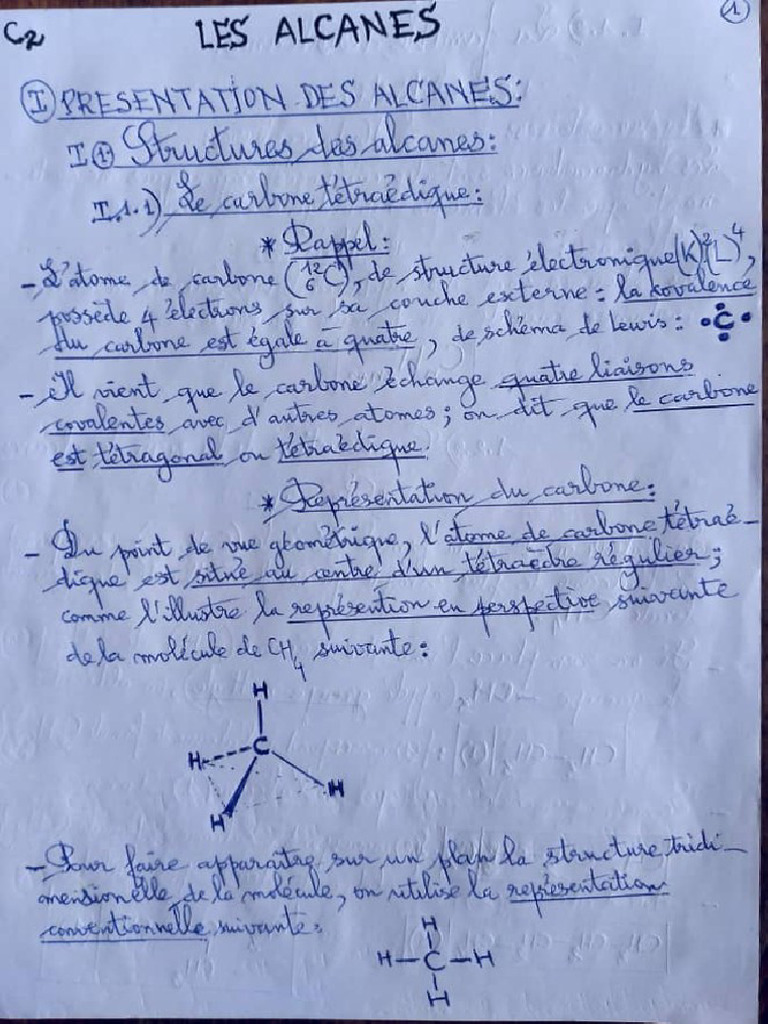 C2
LES ALCANES
1.
I PRESENTATION DES ALCANES:
I 1 Structures des alcanes:
I.1.1) Le carbone tétraédique:
* Rappel:
- L'atome de carbone (¹²₆C), de structure électronique (K)²(L)⁴,
possède 4 électrons sur sa couche externe : la kovalence
du carbone est égale à quatre, de schéma de Lewis : •C•
- Il vient que le carbone échange quatre liaisons
covalentes avec d'autres atomes ; on dit que le carbone
est tétragonal ou tétraédique.
* Représentation du carbone:
- Du point de vue géométrique, l'atome de carbone tétraé-
dique est situé au centre d'un tétraèdre régulier ;
comme l'illustre la représention en perspective suivante
de la molécule de CH₄ suivante :
H
H C
H
H
- Pour faire apparaître sur un plan la structure tridi-
mensionelle de la molécule, on utilise la représentation
conventionnelle suivante :
H
H-C-H
H